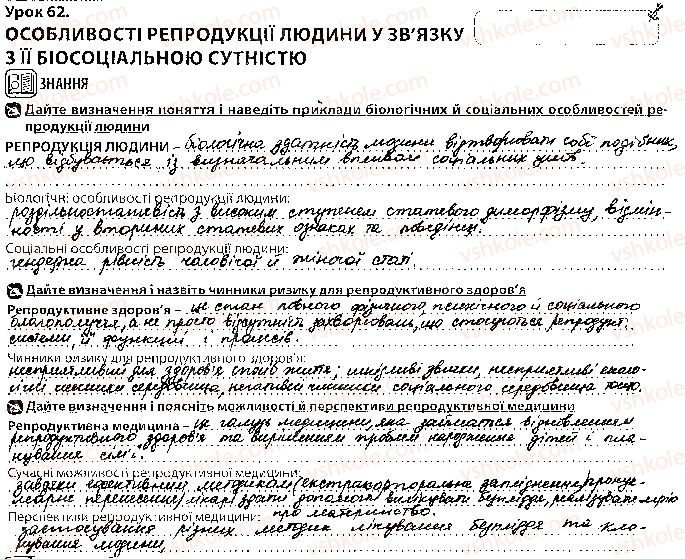 Урок 62.
ОСОБЛИВОСТІ РЕПРОДУКЦІЇ ЛЮДИНИ У ЗВ'ЯЗКУ
З ЇЇ БІОСОЦІАЛЬНОЮ СУТНІСТЮ
ЗНАННЯ
Дайте визначення поняття і наведіть приклади біологічних й соціальних особливостей ре-
продукції людини
РЕПРОДУКЦІЯ ЛЮДИНИ – біологічна здатність людини відтворювати собі подібних,
що відбувається із визначальним впливом соціальних умов.
Біологічні особливості репродукції людини:
роздільностатевість з високим ступенем статевого диморфізму, відмін-
ності у вторинних статевих ознаках та поведінці.
Соціальні особливості репродукції людини:
гендерна рівність чоловічої й жіночої статі.
Дайте визначення і назвіть чинники ризику для репродуктивного здоров'я
Репродуктивне здоров'я – це стан повного фізичного, психічного й соціального
благополуччя, а не просто відсутність захворювань, що стосуються репродукт.
системи, її функцій і процесів.
Чинники ризику для репродуктивного здоров'я:
несприятливий для здоров'я спосіб життя; шкідливі звички, несприятливі еколо-
гічні чинники середовища, негативні чинники соціального середовища тощо.
Дайте визначення і поясніть можливості й перспективи репродуктивної медицини
Репродуктивна медицина – це галузь медицини, яка займається відновленням
репродуктивного здоров'я та вирішенням проблем народження дітей і пла-
нування сім'ї.
Сучасні можливості репродуктивної медицини:
завдяки ефективним методикам (екстракорпоральне запліднення,
перенесення) лікарі здатні допомогти вилікувати безпліддя, реалізувати мрію
про материнство.
Перспективи репродуктивної медицини:
застосування різних методик лікування безпліддя та кло-
нування людини,
vshkole.com